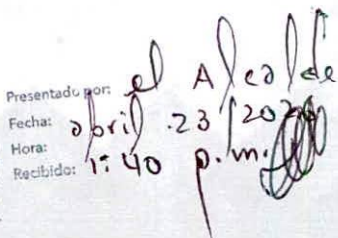 Presentado por: el Alcalde
Fecha: abril 23/
Hora: 1:40 p.m.
Recibido: